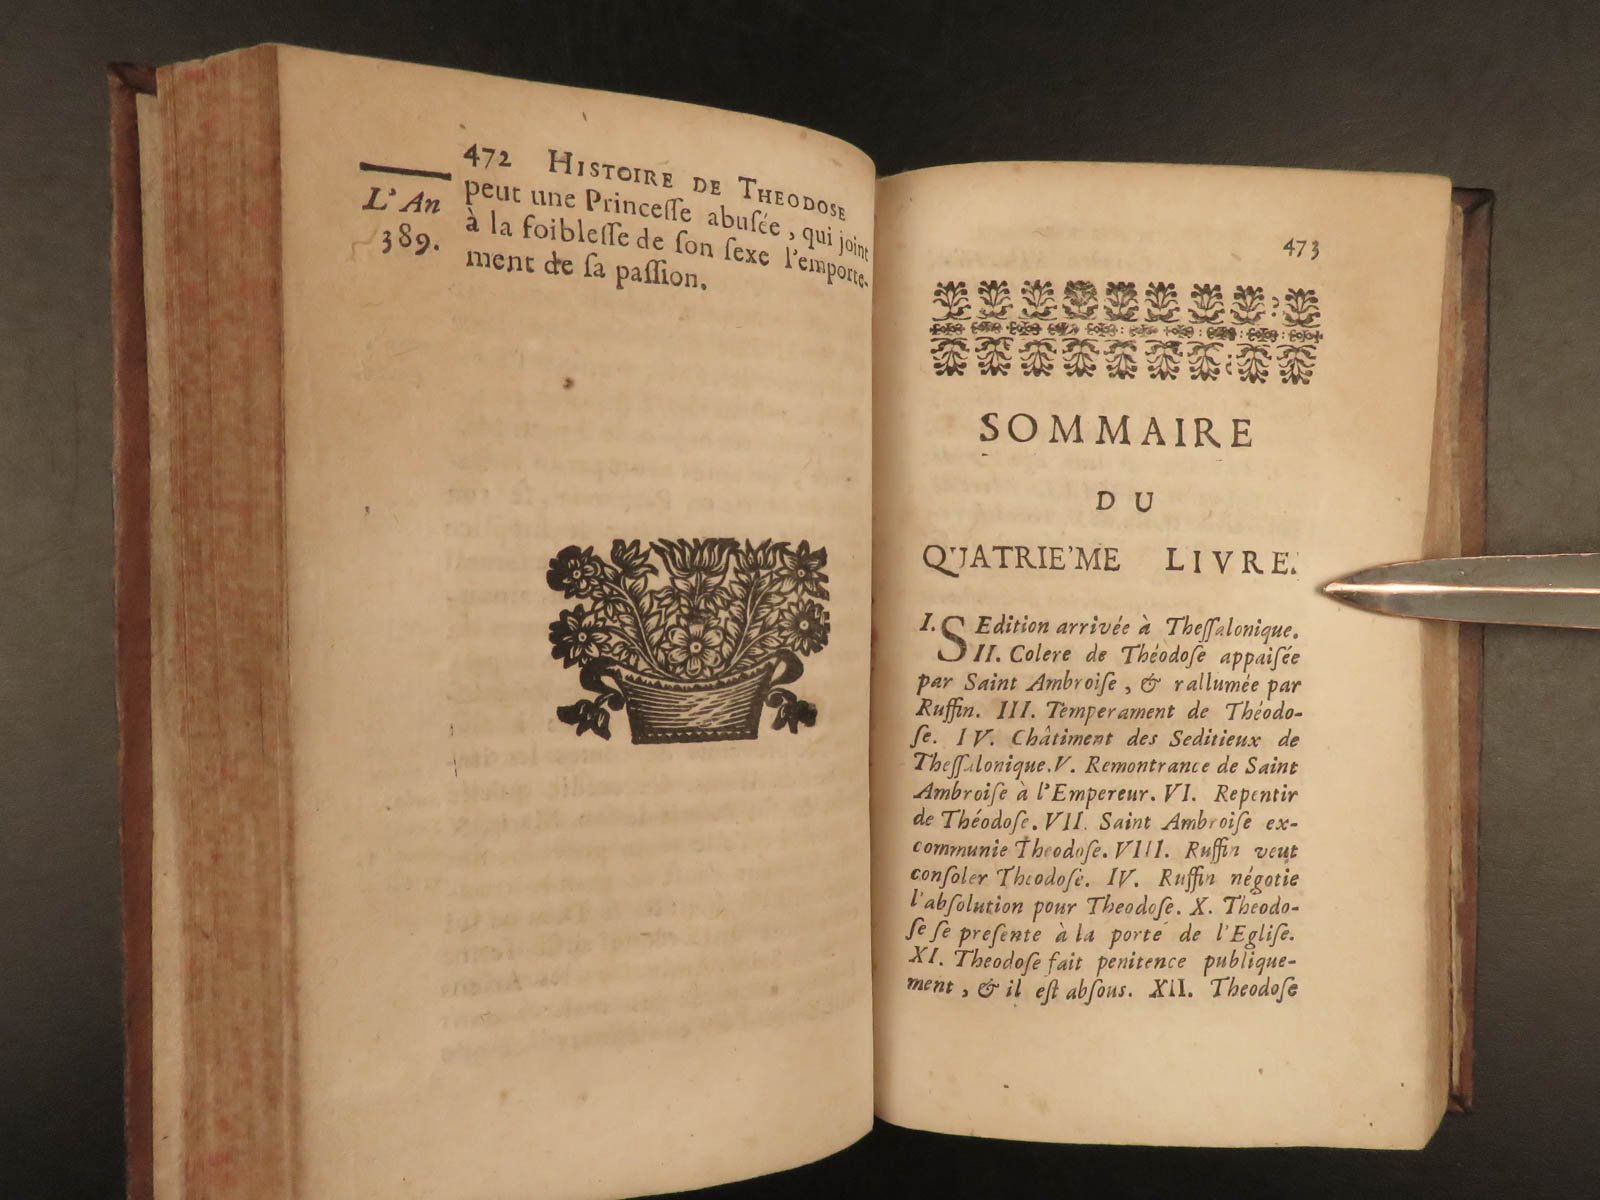 472 HISTOIRE DE THEODOSE
L'An
389.
peut une Princeſſe abuſée, qui joint
à la foibleſſe de ſon ſexe l'emporte-
ment de ſa paſſion.
473
SOMMAIRE
DU
QUATRIE'ME LIVRE.
I. SEdition arrivée à Theſſalonique.
II. Colere de Théodoſe appaiſée
par Saint Ambroiſe, & rallumée par
Ruffin. III. Temperament de Théodo-
ſe. IV. Châtiment des Seditieux de
Theſſalonique. V. Remontrance de Saint
Ambroiſe à l'Empereur. VI. Repentir
de Théodoſe. VII. Saint Ambroiſe ex-
communie Theodoſe. VIII. Ruffin veut
conſoler Theodoſe. IV. Ruffin négotie
l'abſolution pour Theodoſe. X. Theodo-
ſe ſe preſente à la porte de l'Egliſe.
XI. Theodoſe fait penitence publique-
ment, & il eſt abſous. XII. Theodoſe